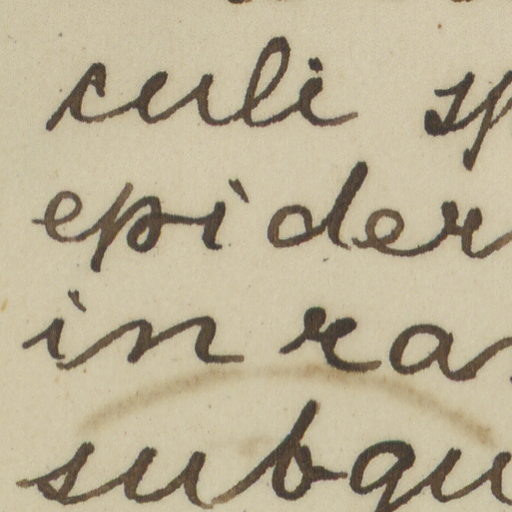 culi sp
epider
in ra
subqu